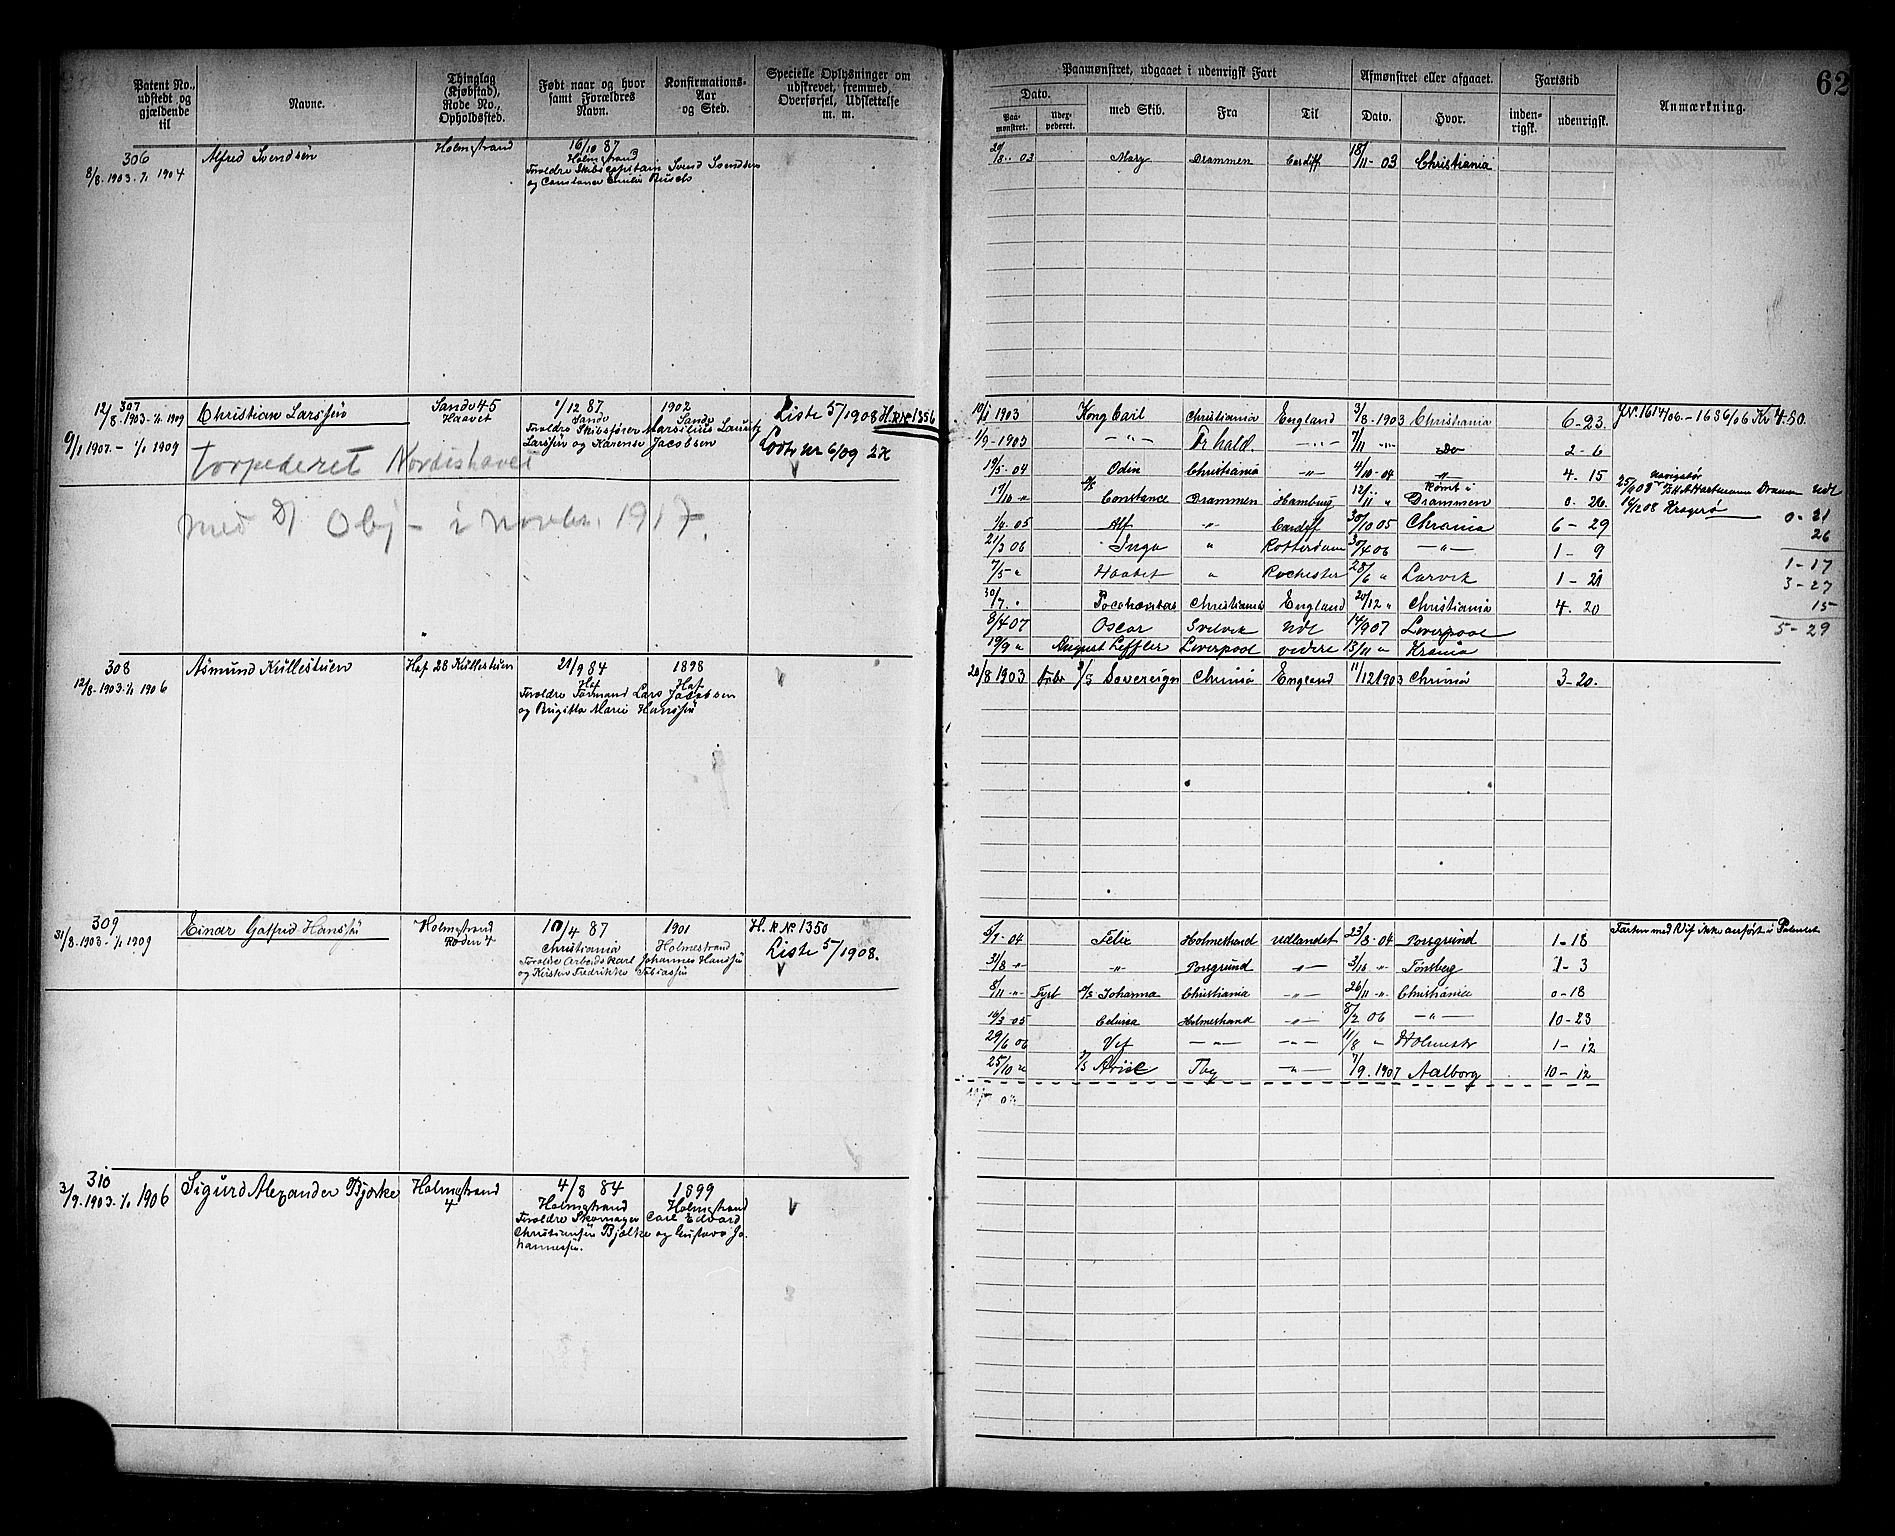 62
Patent No., udstedt og gjældende til
Navne.
Thinglag (Kjøbstad), Rode No., Opholdssted.
Født naar og hvor samt Forældres Navn.
Konfirmations-Aar og Sted.
Specielle Oplysninger om udskrevet, fremmed, Overførsel, Udslettelse m. m.
Paamønstret, udgaaet i udenrigsk Fart
Dato.
Paa-mønstret.
med Skib.
Fra
Til
Afmønstret eller afgaaet.
Dato.
Hvor.
Fartstid
inden-rigsk.
udenrigsk.
Anmærkning.
306
8/8-1903-1/1 1904
Alfred Svendsen
Holmestrand
16/10 87
Holmestrand
Foreldre Skibscaptain Svend Svendsen
og Constance Emilie
29/8-03 Mary Drammen Cardiff 18/11-03 Christiania
307
12/8-1903-1/1 1909
9/1 1907-1/1 1909
Christian Larssen
Sande 45
Haavet
1/12 87
Sande
1902
Sande
Foreldre Skibsfører Marselius Lauritz
Larssen og Karense Jacobsen
Liste 5/1908 H.R.No 1356
Lodtr nr 6/09
torpederet Nordishavet
med D/ Obj - i novbr. 1917.
1903 Kong Carl Christiania England 3/8-1903 Christiania 6-23.
J.No. 1614/06.-1636/06 Kr 4.80.
1/9-1903 -"- Fr hald. -"- 7/11 Do 2-6
19/5-04 Odin Christiania -"- 4/10-04 " 4.15
17/10 " Constance Drammen Hamburg 12/11 " Rømt i Drammen 0-26
1/4 05 Alf " Cardiff 30/10 05 Chrania 6-29
21/3 06 Inga " Rotterdam 30/4 06 -"- 1-9
7/5 " Haabet " Rochester 28/6 " Larvik 1-21
30/7 " Pocahontas Christiania England 20/12 " Christiania 4.20
8/4 07 Oscar Svelvik Udl 14/9 07 Liverpool
19/9 " August Leffler Liverpool videre 13/11 " Krania
Kragerø
0-21
26
1-17
3-27
15
5-29
308
12/8-1903-1/1 1906
Asmund Kullestuen
Hof 28 Kullestuen
21/9 84
Hof
1898
Hof
Foreldre Formand Lars Jacobsen
og Birgitta Marie Hanssen
20/8 1903 S/S Sovereign Chrania England 11/12 1903 Chrania 3-20.
309
31/8-1903-1/1 1909
Einar Gotfred Hanssen
Holmestrand
Roden 4
10/4 87
Christiania
1901
Holmestrand
Foreldre Arbeidskarl Johannes Hanssen
og Kirsten Fredrikke Tobiassen
H.R No. 1350
Liste 5/1908.
5/7-04 Felix Holmestrand udlandet 23/8-04 Porsgrund 1-18
Farten med Vif ikke anført i Patentet
31/8 " " Porsgrund -"- 3/10 " Tønsberg 1-3
8/11 " Fyrb S/S Johanna Christiania -"- 26/11 " Christiania 0-18
16/3-05 Holmestrand -"- 8/2 06 -"- 10-23
29/6 06 Vif -"- -"- 11/8 " Holmestr 1-12
25/10 " Tbg -"- 7/9.1907 Aalborg 10-12
310
3/9.1903-1/1 1906
Sigurd Alexander Bjørke
Holmestrand
4
4/8 84
Holmestrand
1899
Holmestrand
Foreldre Skomager Carl Edvard
Christiansen Bjølke og Gustava Jo-
hannessen.